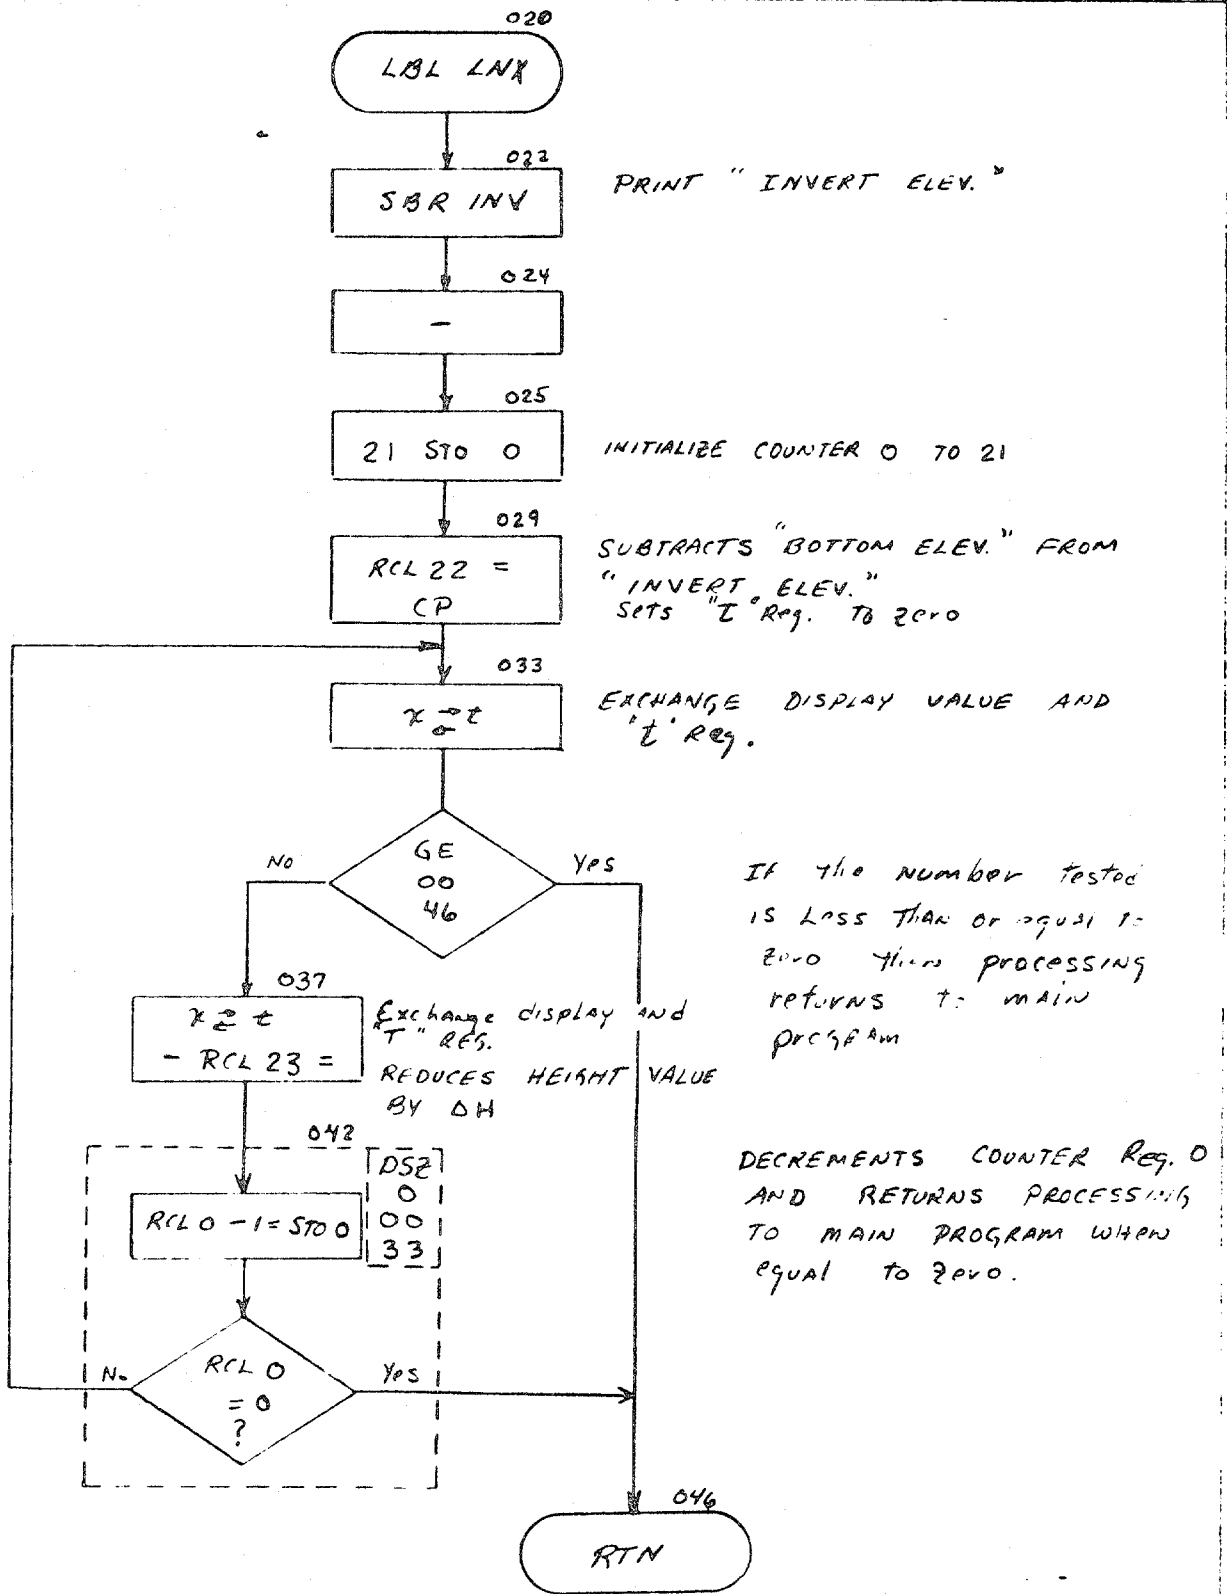 020
LBL LNX
022
SBR INV
PRINT "INVERT ELEV."
024
-
025
21 STO 0
INITIALIZE COUNTER 0 TO 21
029
RCL 22 =
CP
SUBTRACTS "BOTTOM ELEV." FROM
"INVERT ELEV."
Sets "T" Reg. To zero
033
x ⇄ t
EXCHANGE DISPLAY VALUE AND
't' Reg.
GE
00
46
No
Yes
If the Number tested
is Less Than or equal to
zero then processing
returns to main
program
037
x ⇄ t
- RCL 23 =
Exchange display and
"T" REG.
REDUCES HEIGHT VALUE
BY ΔH
042
RCL 0 - 1 = STO 0
DSZ
0
00
33
DECREMENTS COUNTER Reg. 0
AND RETURNS PROCESSING
TO MAIN PROGRAM WHEN
equal to zero.
RCL 0
= 0
?
No
Yes
046
RTN